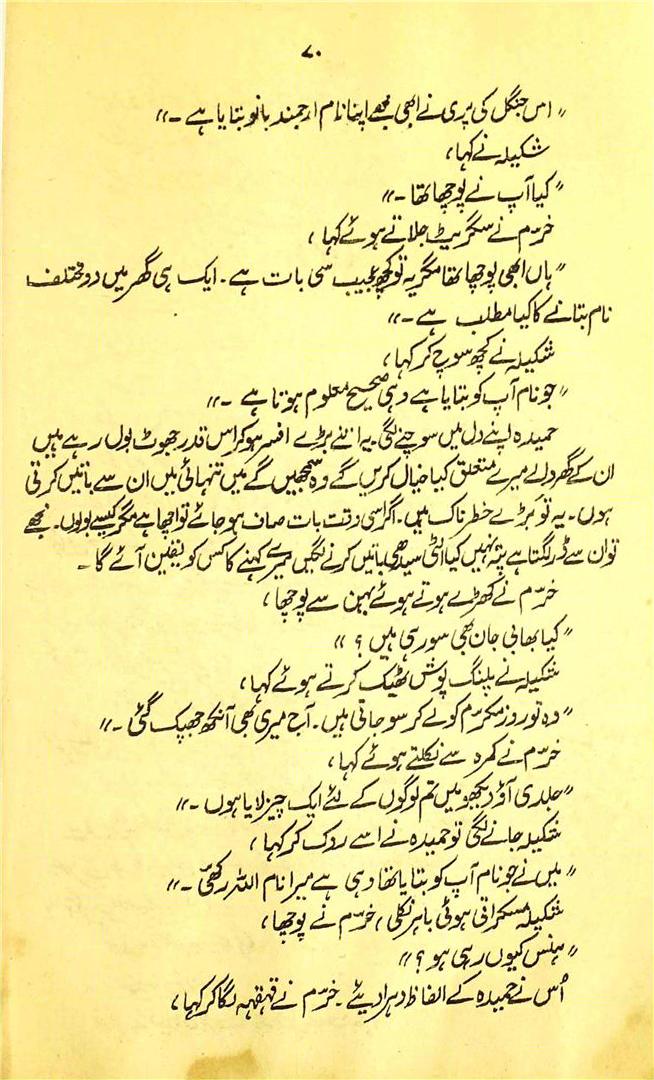 ۷۰
"اس جنگل کی پری نے ابھی مجھے اپنا نام ارجمند بانو بتایا ہے۔"
شکیلہ نے کہا،
"کیا آپ نے پوچھا تھا۔"
خرّم نے سگریٹ جلاتے ہوئے کہا،
"ہاں ابھی پوچھا تھا مگر یہ تو کچھ عجیب سی بات ہے۔ ایک ہی گھر میں دو مختلف
نام بتانے کا کیا مطلب ہے۔"
شکیلہ نے کچھ سوچ کر کہا،
"جو نام آپ کو بتایا ہے وہی صحیح معلوم ہوتا ہے۔"
حمیدہ اپنے دل میں سوچنے لگی۔ یہ اتنے بڑے افسر ہو کر اس قدر جھوٹ بول رہے ہیں
ان کے گھر والے میرے متعلق کیا خیال کریں گے وہ سمجھیں گے میں تنہائی میں ان سے باتیں کرتی
ہوں۔ یہ تو بڑے خطرناک ہیں۔ اگر اسی وقت بات صاف ہو جائے تو اچھا ہے مگر کیسے بولوں۔ مجھے
تو ان سے ڈر لگتا ہے پتہ نہیں کیا الٹی سیدھی باتیں کرنے لگیں میرے کہنے کا کس کو یقین آئے گا۔
خرّم نے کھڑے ہوتے ہوئے بہن سے پوچھا،
"کیا بھابی جان بھی سو رہی ہیں؟"
شکیلہ نے پلنگ پوش ٹھیک کرتے ہوئے کہا،
"وہ تو روز مکرّم کو لے کر سو جاتی ہیں۔ آج میری بھی آنکھ جھپک گئی۔"
خرّم نے کمرہ سے نکلتے ہوئے کہا،
"جلدی آؤ دیکھو میں تم لوگوں کے لئے ایک چیز لایا ہوں۔"
شکیلہ جانے لگی تو حمیدہ نے اسے روک کر کہا،
"میں نے جو نام آپ کو بتایا تھا وہی ہے میرا نام اللہ رکھی۔"
شکیلہ مسکراتی ہوئی باہر نکلی، خرّم نے پوچھا،
"ہنس کیوں رہی ہو؟"
اُس نے حمیدہ کے الفاظ دہرا دیئے۔ خرّم نے قہقہہ لگا کر کہا،